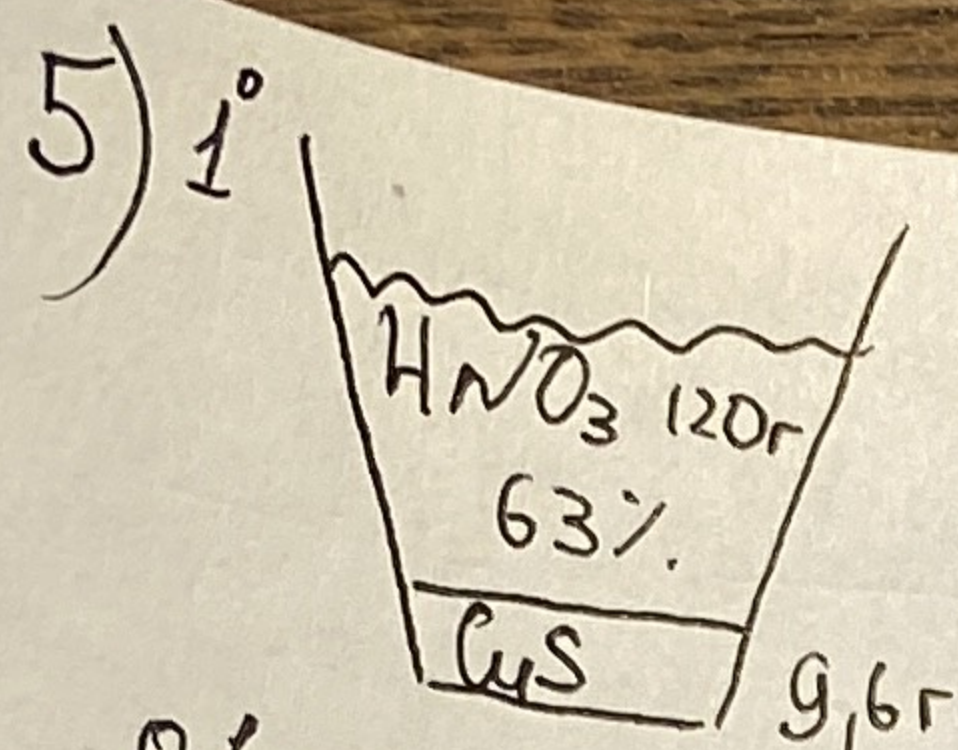 5) 1°
HNO₃ 120г
63%.
CuS 9,6г